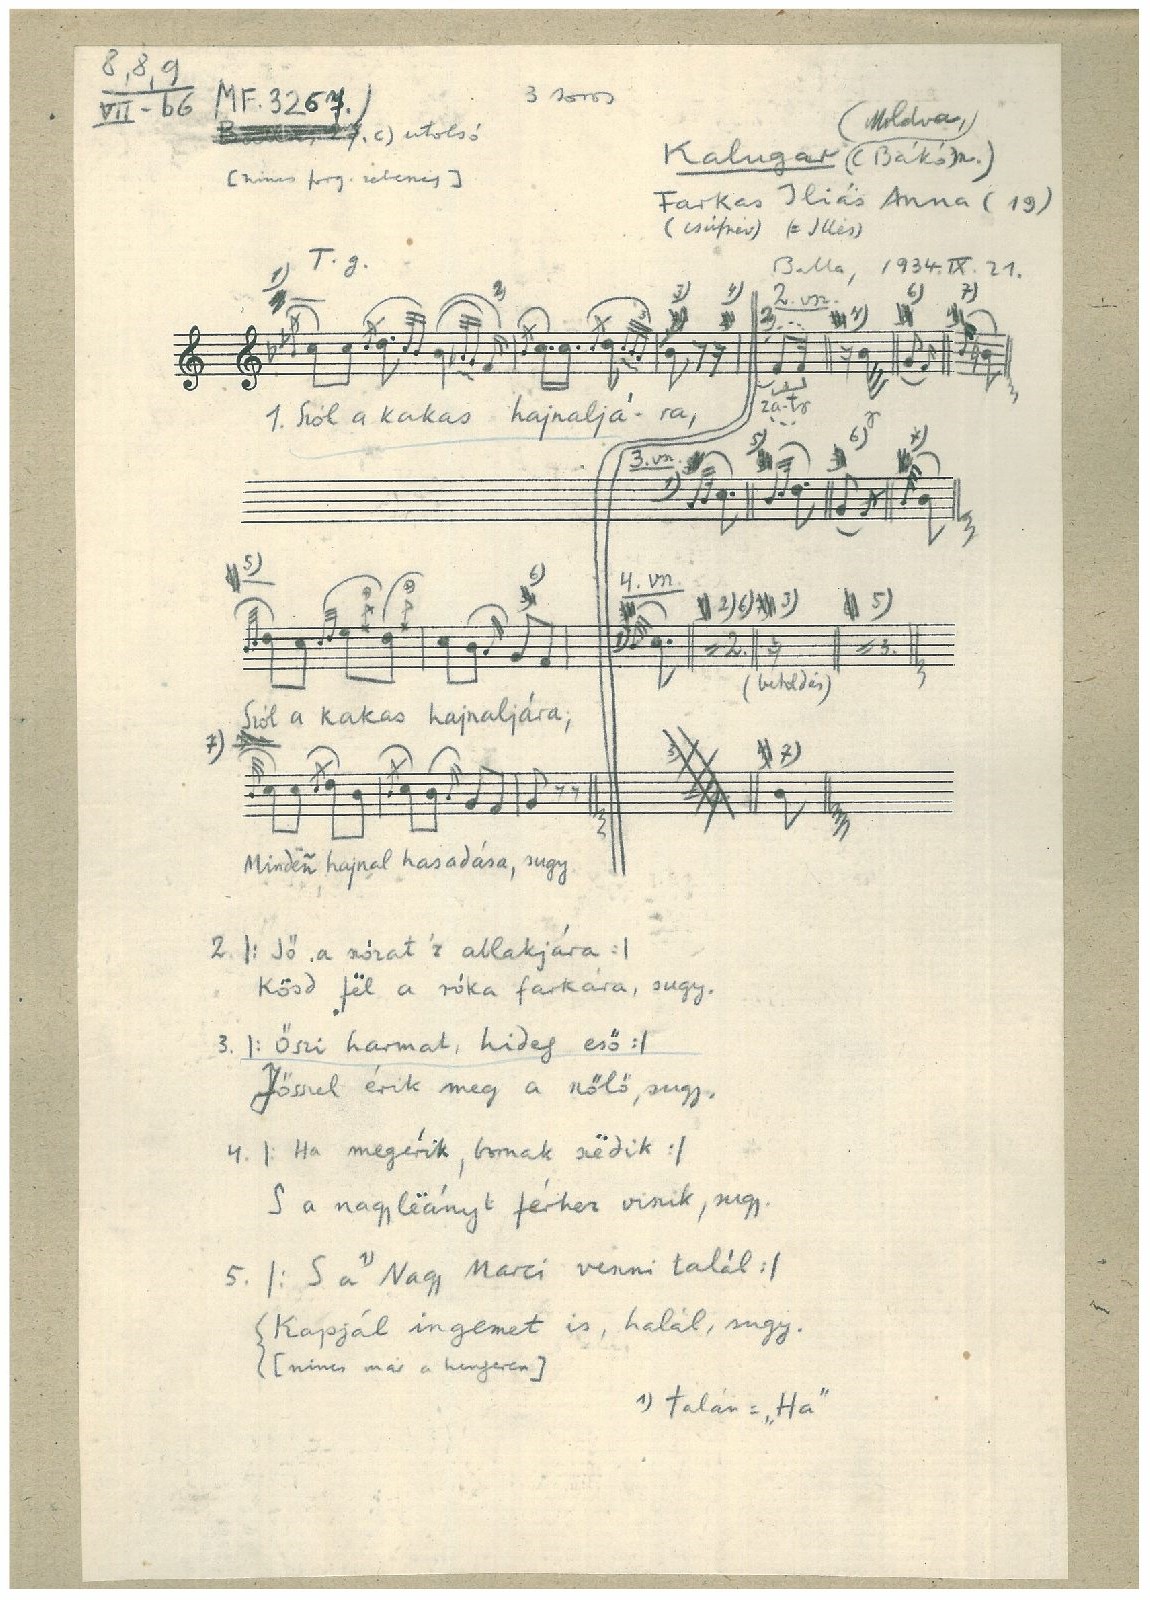 8,8,9
VII - b6
MF. 3267.)
3 soros
c) utolsó
(Moldva,)
Kalugar (Bákó m.)
Farkas Iliás Anna (19)
(csúfnév) (= Illés)
T. g.
Balla, 1934. IX. 21.
1) 2) 3) 4) 2. vsz. 6) 7)
1. Szól a kakas hajnaljá- ra,
za-tr
3. vsz. 1) 5) 6)
5) 6) 4. vsz. 1) 2) 6) 3) 5)
= 2. = 3.
(betoldás)
Szól a kakas hajnaljára,
7) 7)
Mindën hajnal hasadása, sugy
2. |: Jő a allakjára :|
Kösd fël a róka farkára, sugy.
3. |: Őszi harmat, hideg eső :|
Jősszel érik meg a szőlő, sugy.
4. |: Ha megérik, bornak szëdik :|
S a nagylëányt férhez viszik, sugy.
5. |: S a 1) Nagy Marci venni talál :|
Kapjál ingemet is, halál, sugy.
[nincs már a hengeren]
1) talán = „Ha"